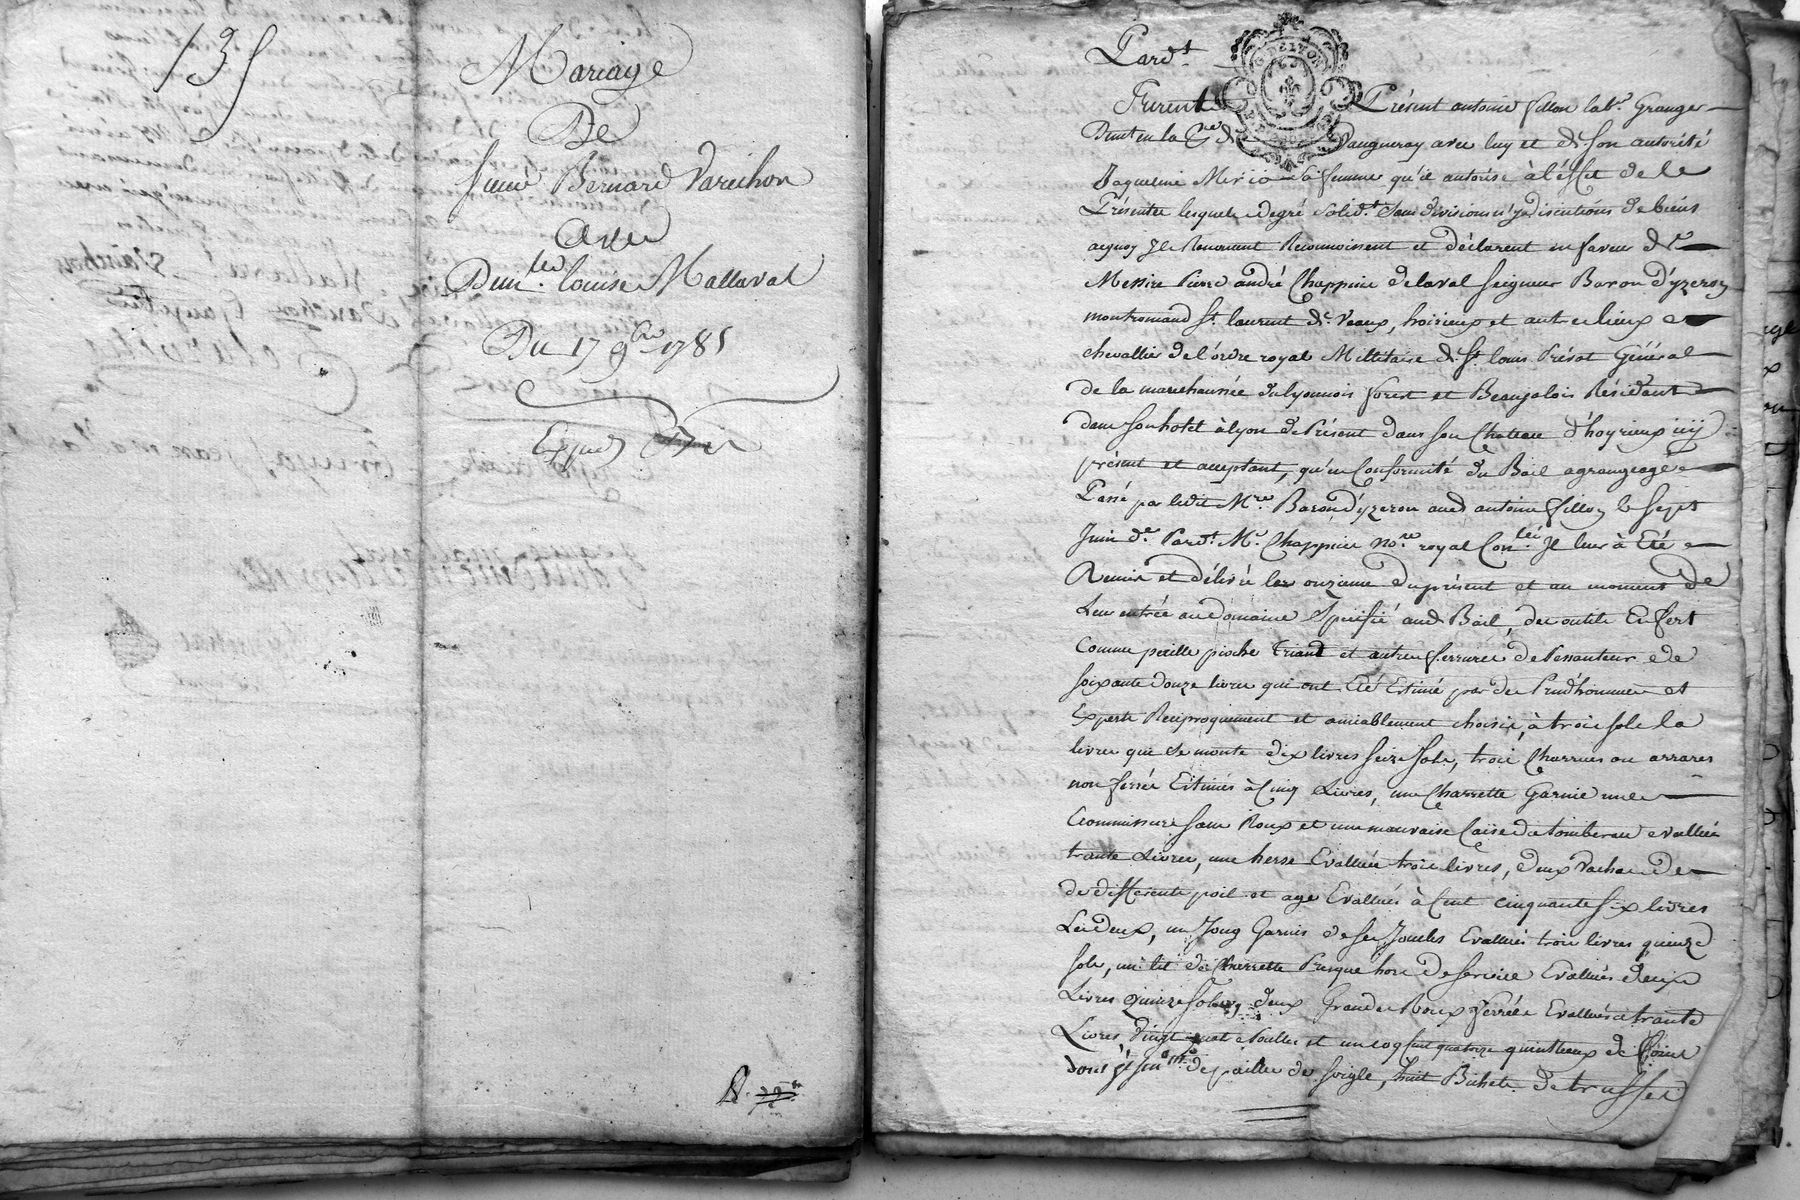 135
Mariage
De
Sieur Bernard Varichon
avec
Dem.lle louise Mallaval
Du 17 9bre 1785
Expied
Pard.t
Furent Présent antoine fillon lab.r Granger
Dem.t en la Vaugneray avec luy et de son autorité
Jaqueline sa femme qu'il autorise à l'éffet de le
Présentes lesquels degré solid.t sans division n'y discutions de biens
aequoy Ils Renoncent Reconnoissent et déclarent en faveur de
Messire Pierre andré Chappuie delaval Seigneur Baron d'yzeron
montromand S.t laurent de Veaux, hoirieux et autres lieux
chevallier de l'ordre royal Millitaire de S.t louis Prévot Général
de la marechaussée du lyonnois forest et Beaujolois Résidant
dans son hotel à lyon de Présent dans son Chateau d'hoyrieux icy
présent et acceptant, qu'en Conformité du Bail agrangeage
Passé par ledit M.re Baron d'yzeron aud antoine fillon le sept
Juin d.er Pard.t M.e Chappuie no.re royal Il leur à Eté
Remis et délivré les onzieme du présent et au moment de
Leur entrée au domaine Spécifié aud Bail, des outils En fert
Comme paille pioche triand et autres ferrures de Pessanteur de
soixante douze livres qui ont Eté Estimé par des Prud'hommes et
Experts Réciproquement et amiablement choisis, à trois sols la
livres qui se monte dix livres seize sols, trois Charrues ou arrares
non ferrée Estimés à Cinq Livres, une Charrette Garnie une
Commissure sans Roux et une mauvaise Caise de tombereau evalluée
trante Livres, une herse Evalluée trois livres, deux Vaches de
de différents poil et age Evallués à Cent cinquante six livres
Les deux, un Joug Garnis de ses Joucles Evallués trois livres quinze
sols, un lit de Charrette Presque hors de service Evallués deux
Livres quinze sols, deux Grandes Roux ferrée Evalluées trante
Livres Vingt quat e Poulles et un coq quatorze quinteaux de foins
de paille de soigle, huit Bichets de truffes